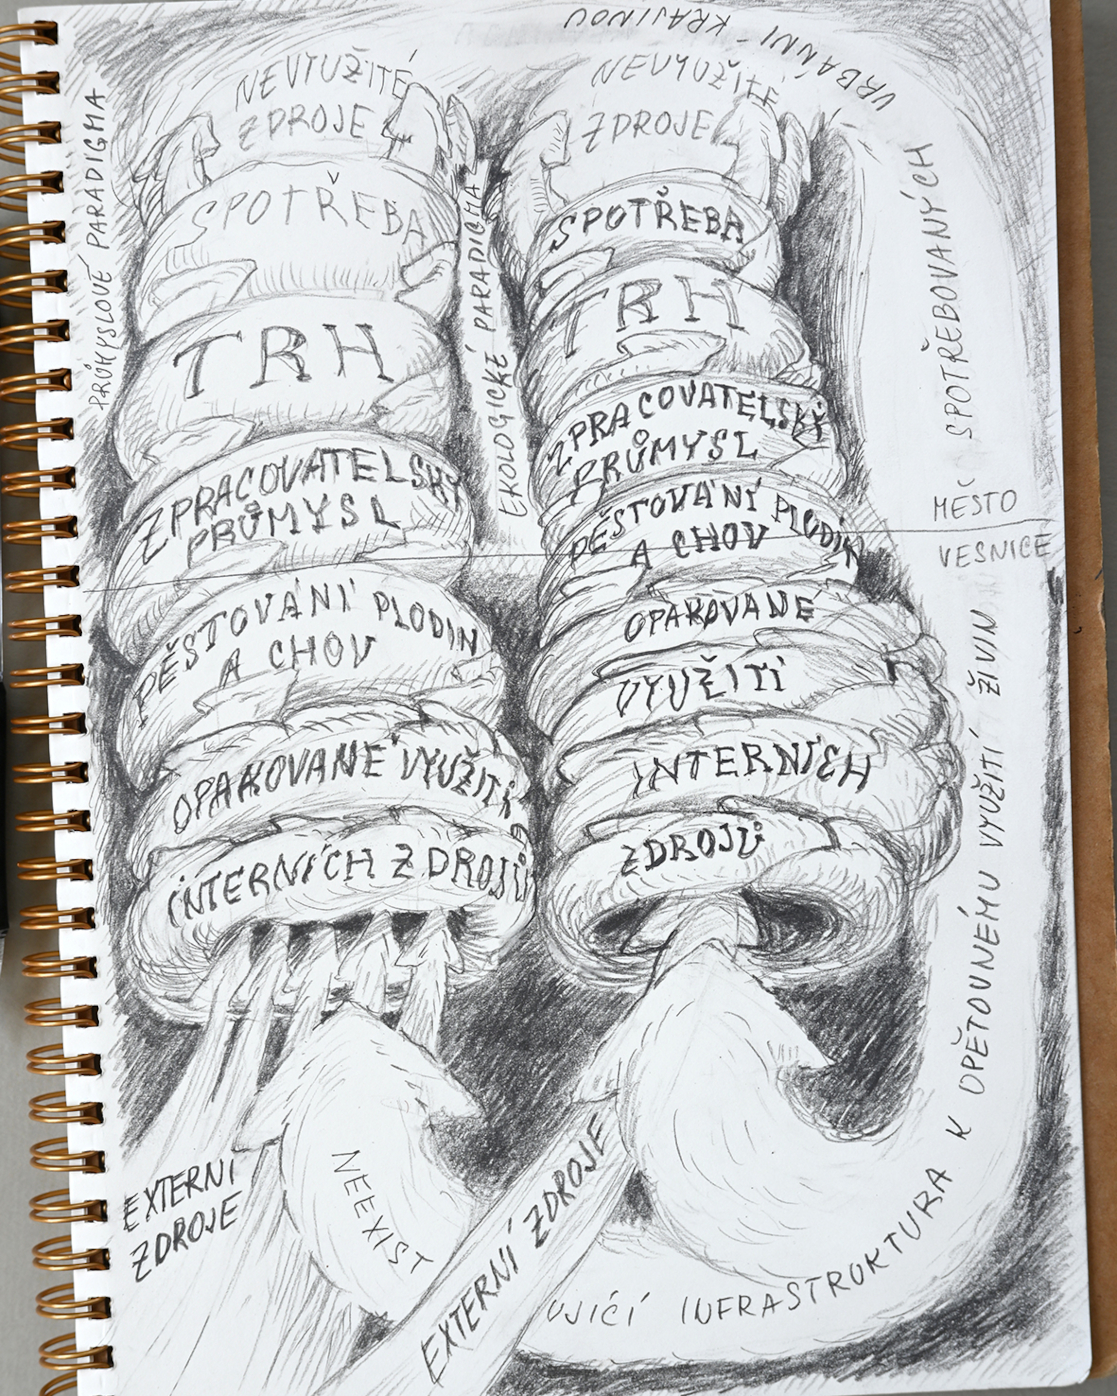 PRŮMYSLOVÉ PARADIGMA
NEVYUŽITÉ
ZDROJE
SPOTŘEBA
TRH
ZPRACOVATELSKÝ
PRŮMYSL
PĚSTOVÁNÍ PLODIN
A CHOV
OPAKOVANÉ VYUŽITÍ
INTERNÍCH ZDROJŮ
EXTERNÍ
ZDROJE
NEEXIST
EKOLOGICKÉ PARADIGMA
NEVYUŽITÉ
ZDROJE
SPOTŘEBA
TRH
ZPRACOVATELSKÝ
PRŮMYSL
PĚSTOVÁNÍ PLODIN
A CHOV
OPAKOVANÉ
VYUŽITÍ
INTERNÍCH
ZDROJŮ
EXTERNÍ ZDROJE
MĚSTO
VESNICE
UJÍCÍ INFRASTRUKTURA K OPĚTOVNÉMU VYUŽITÍ ŽIVIN
SPOTŘEBOVANÝCH
URBÁNNÍ - KRAJINOU